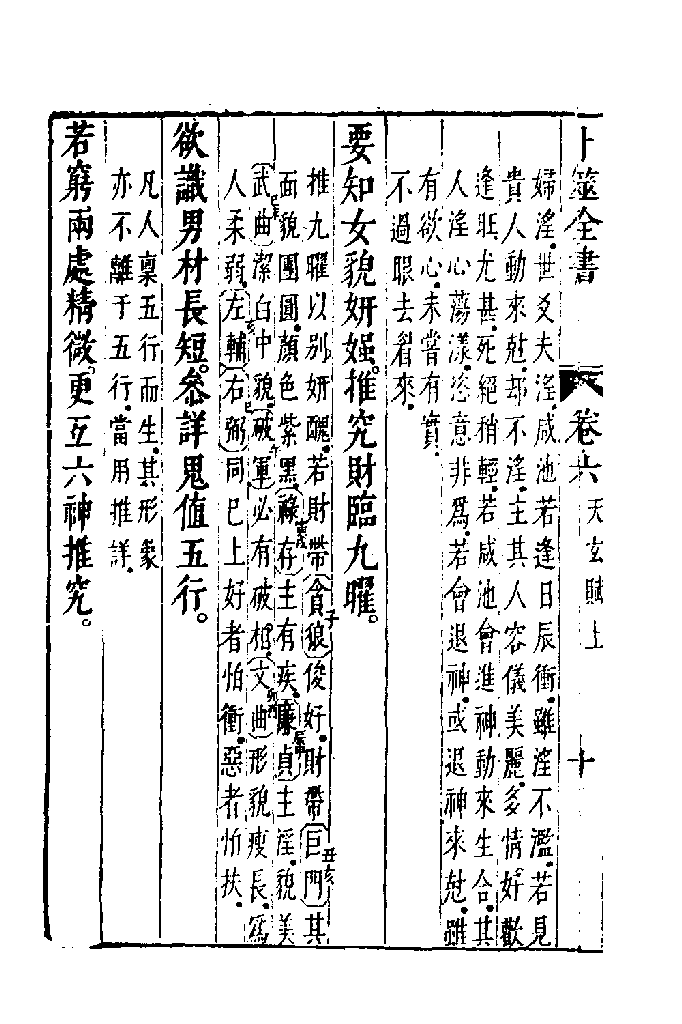 卜筮全書 卷六 天玄賦上 十
婦淫世爻夫淫咸池若逢日辰衝雖淫不濫若見
貴人動來尅却不淫主其人容儀美麗多情好歡
逢旺尤甚死絕稍輕若咸池會進神動來生合其
人淫心蕩漾恣意非爲若會退神或退神來尅雖
有欲心未嘗有實
不過眼去看來
要知女貌妍媸推究財臨九曜
推九曜以別妍醜若財帶貪狼子俊好財帶巨門丑亥其
面貌團圓顏色紫黑祿存寅戌主有疾廉貞辰申主淫貌美
武曲巳未潔白中貌破軍午必有破相文曲卯酉形貌瘦長爲
人柔弱左輔亥右弼巳同已上好者怕衝惡者怕扶
欲識男材長短參詳鬼值五行
凡人稟五行而生其形象
亦不離于五行當用推詳
若窮兩處精微更互六神推究